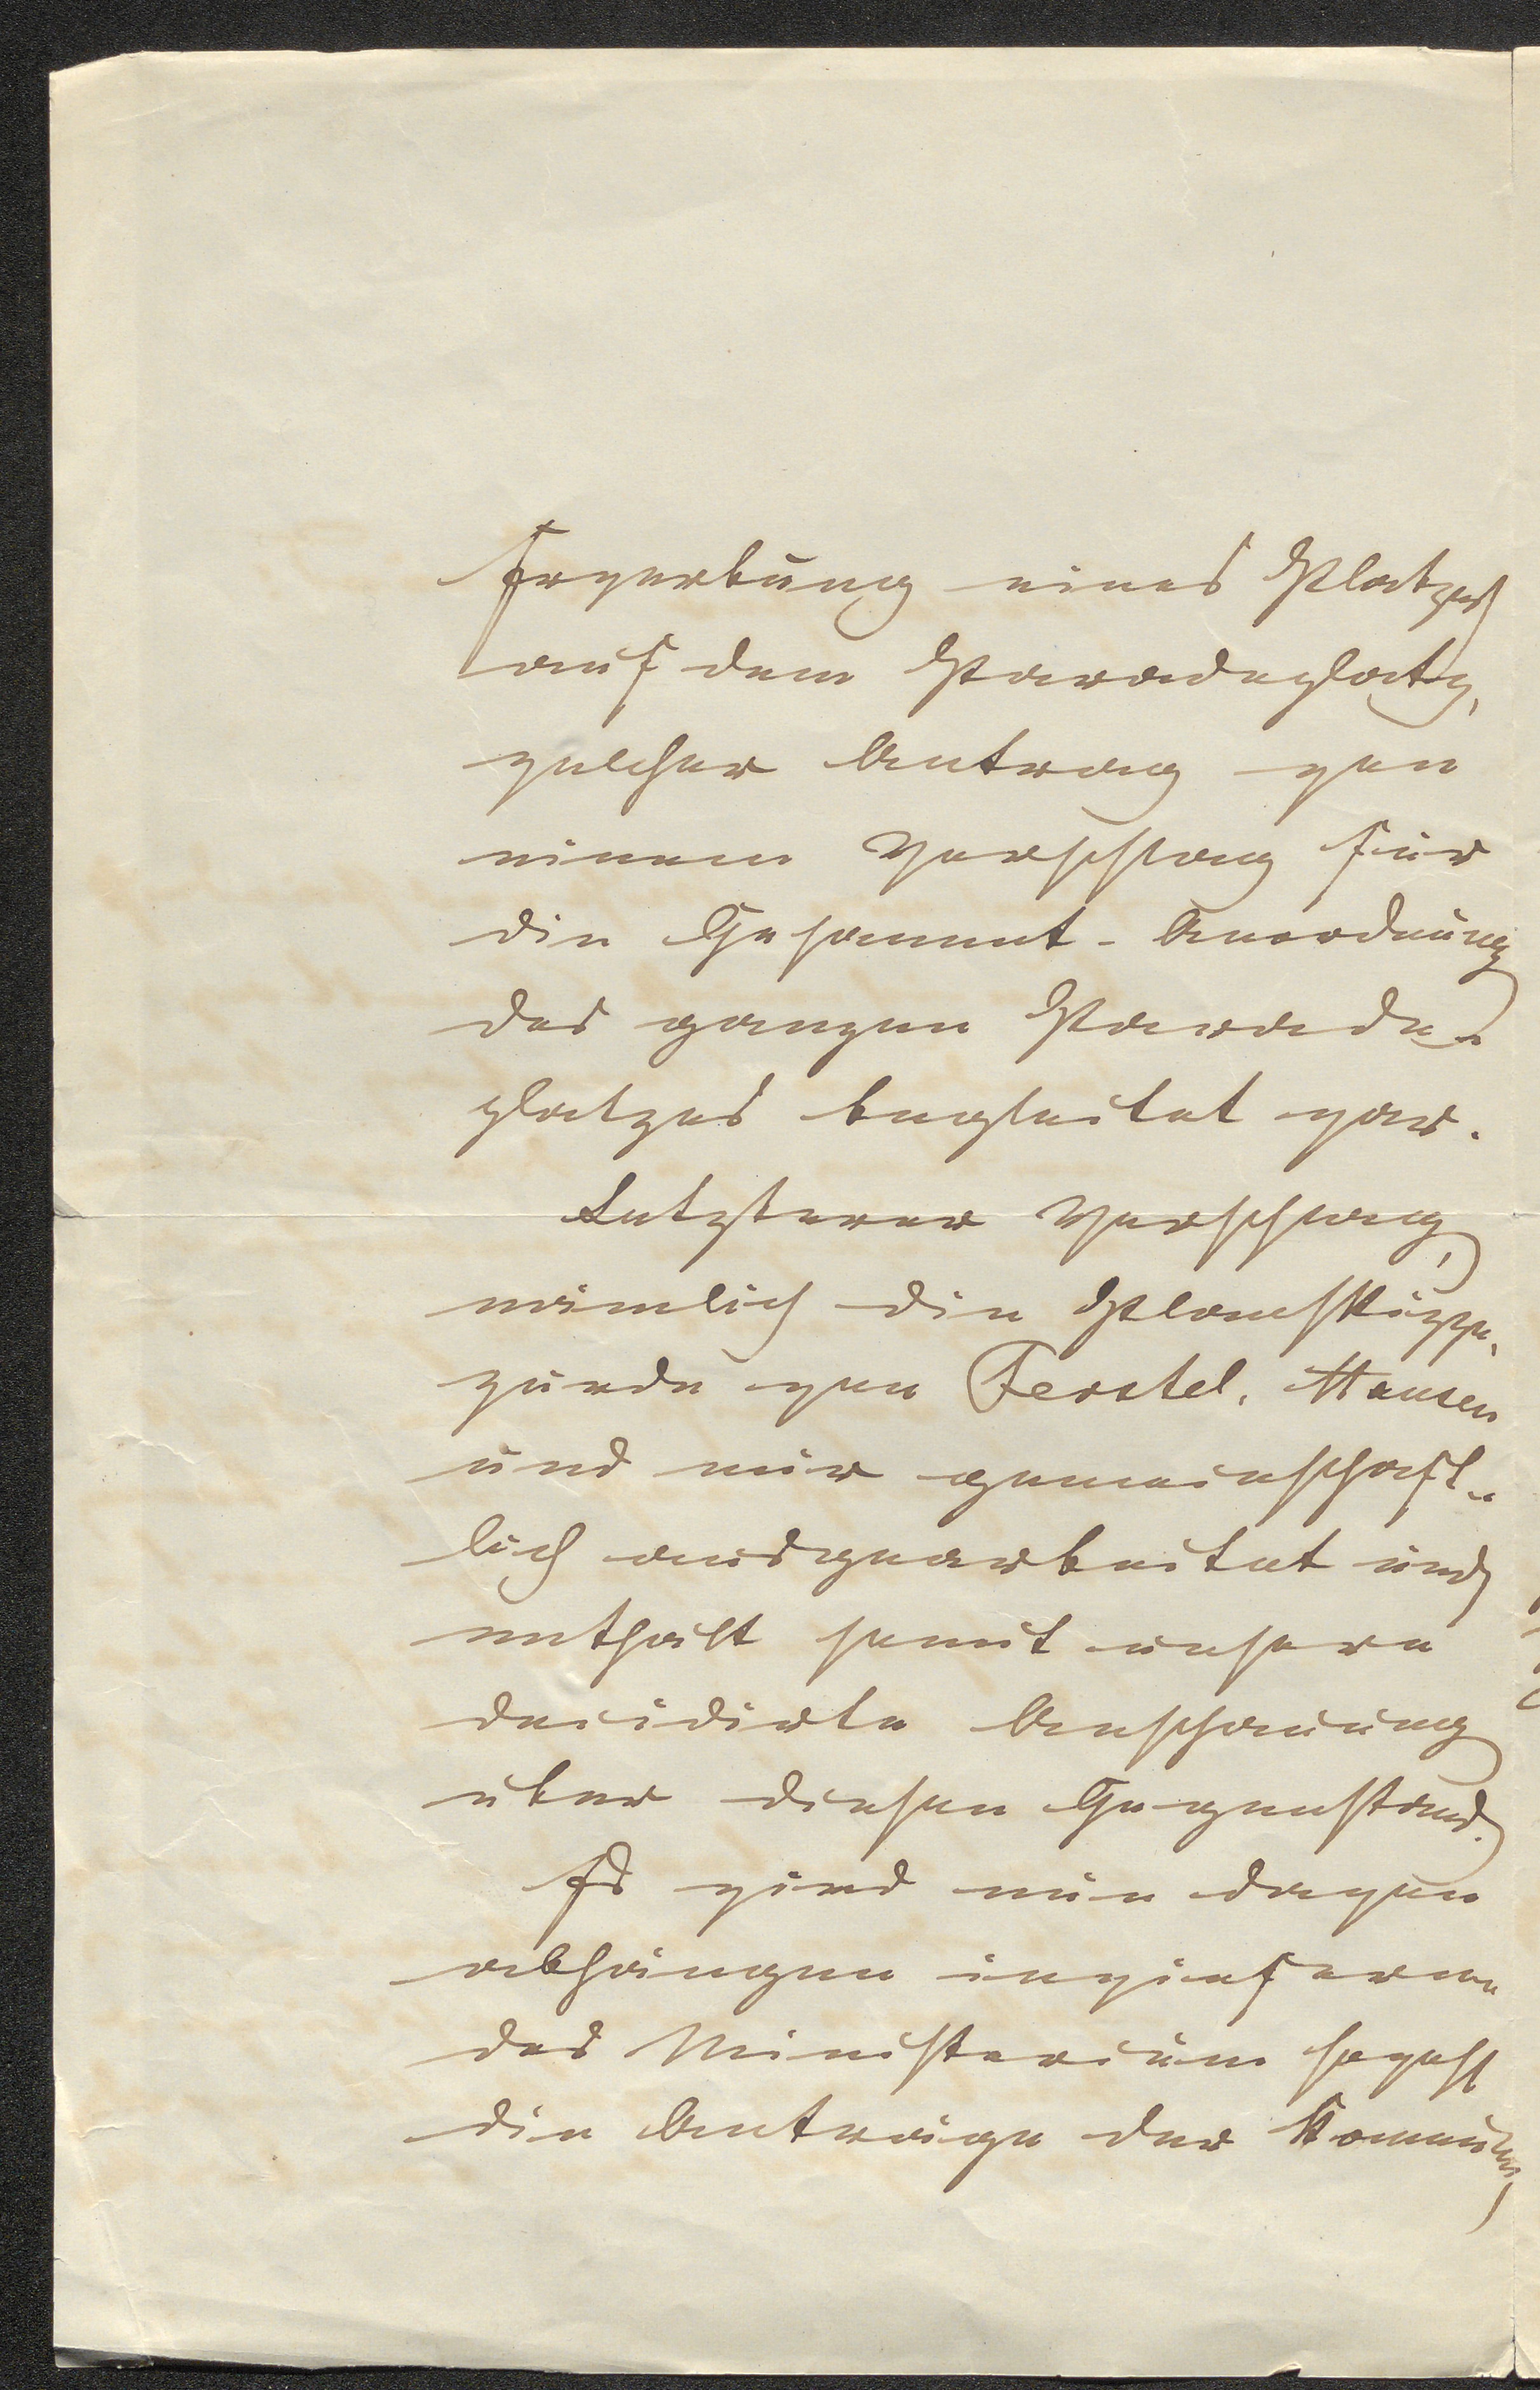 Erwerbung eines Platzes
auf dem Paradeplatz,
welcher Antrag von
einem Vorschlag für
die Gesammt-Anordnung
des ganzen Parade-
platzes begleitet war.
Letzterer Vorschlag,
nämlich die Planskizze,
wurde von Ferstel, Hansen
und mir gemeinschaft-
lich ausgearbeitet und
enthält somit unsere
decidirte Anschauung
über diesen Gegenstand.
Es wird nun davon
abhängen inwieferne
das Ministerium sowohl
die Anträge der